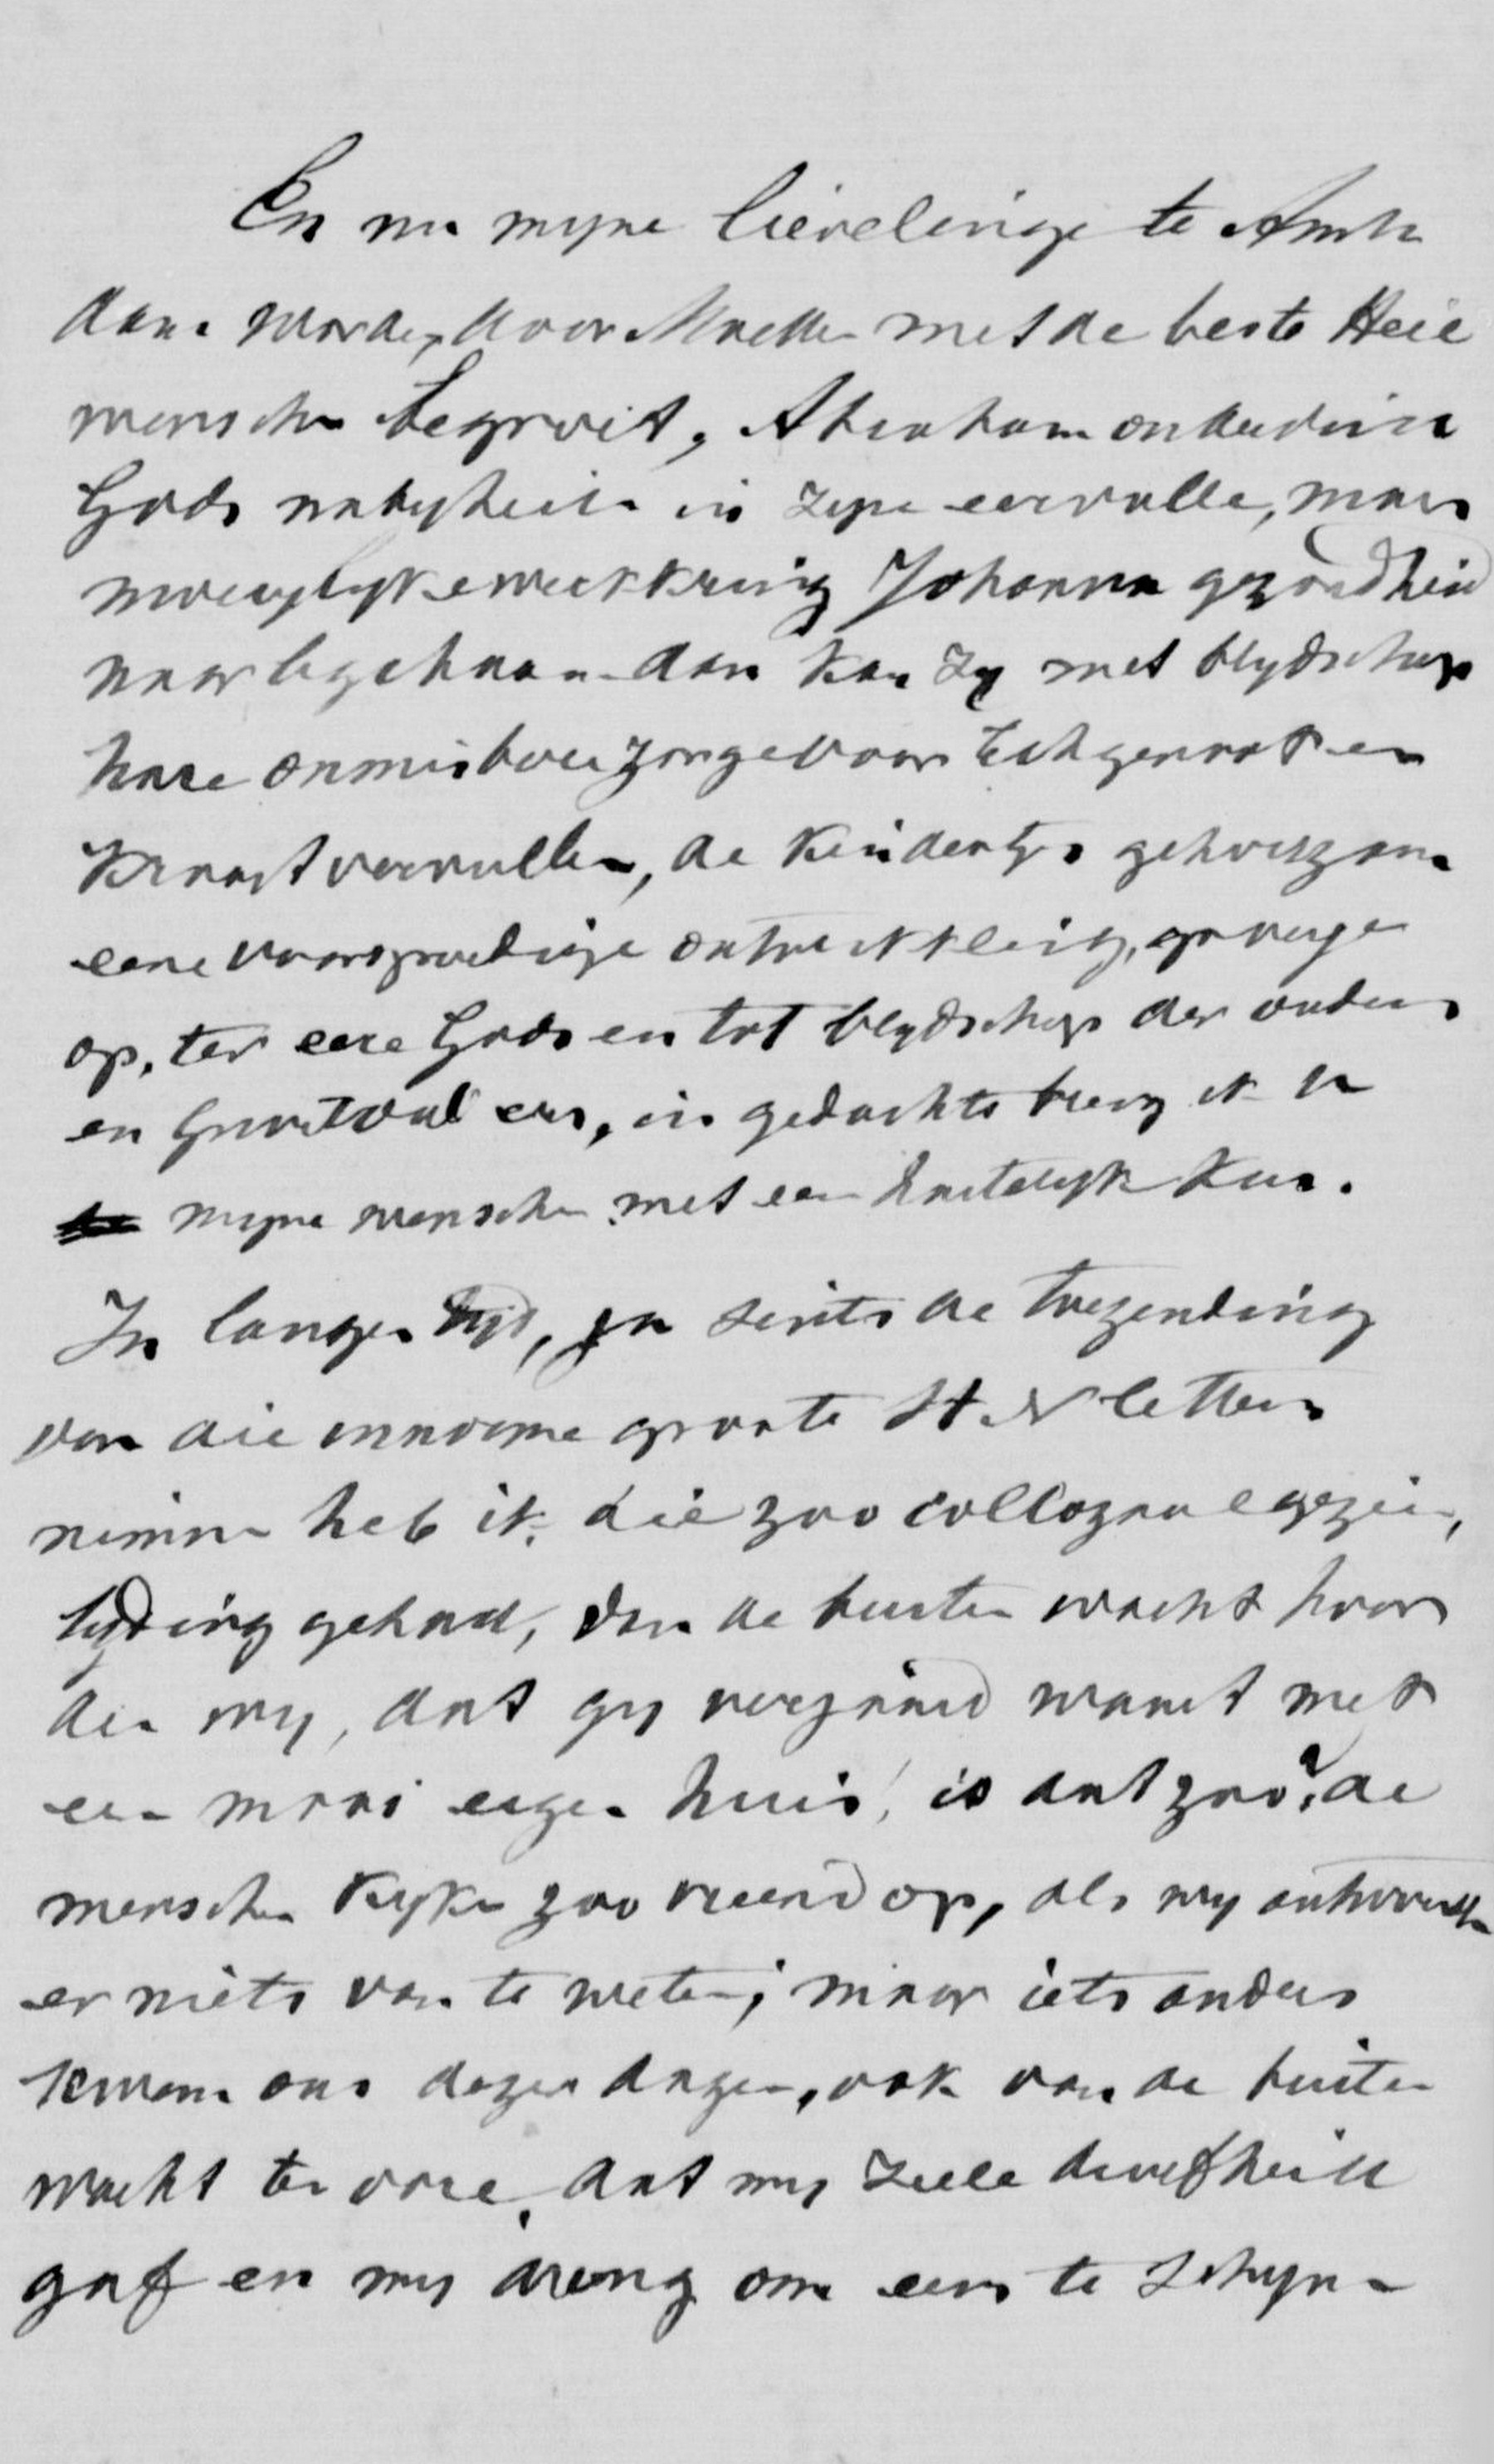 En nu myne lievelinge te Amster
dam worden door Moeder met de beste Heil
wenschen begroet, Abraham ondervinde
Gods nabyheid in zyne eervolle, maar
moeyelyke werkkring Johanna gezondheid
naar ligchaam dan kan zy met blydschap
hare onmisbare zorge voor Echtgenoot en
Kroost vervullen, de Kindertjes gehoorzaam
eene voorspoedige ontwikkeling, groeye
op, ter eere Gods en tot blydschap der ouders
en Grootouders, in gedachte breng ik u
myne wenschen met een hartelyk Kus.
In langen tyd, ja sints de toezending
van die ennorme groote St. N letters
nimmer heb ik die zoo collozaal gezien,
tyding gehad, van de buiten wacht hoor
den wy, dat gy verzaaid waart met
een mooi eigen huis, is dat zoo? de
menschen kyken zoo vreemd op, als wy antwoorden
er niets van te weten; maar iets anders
kwam ons dezer dagen, ook van de buiten
wacht ter oore, dat my ziele droefheid
gaf en my drong om eens te schryven